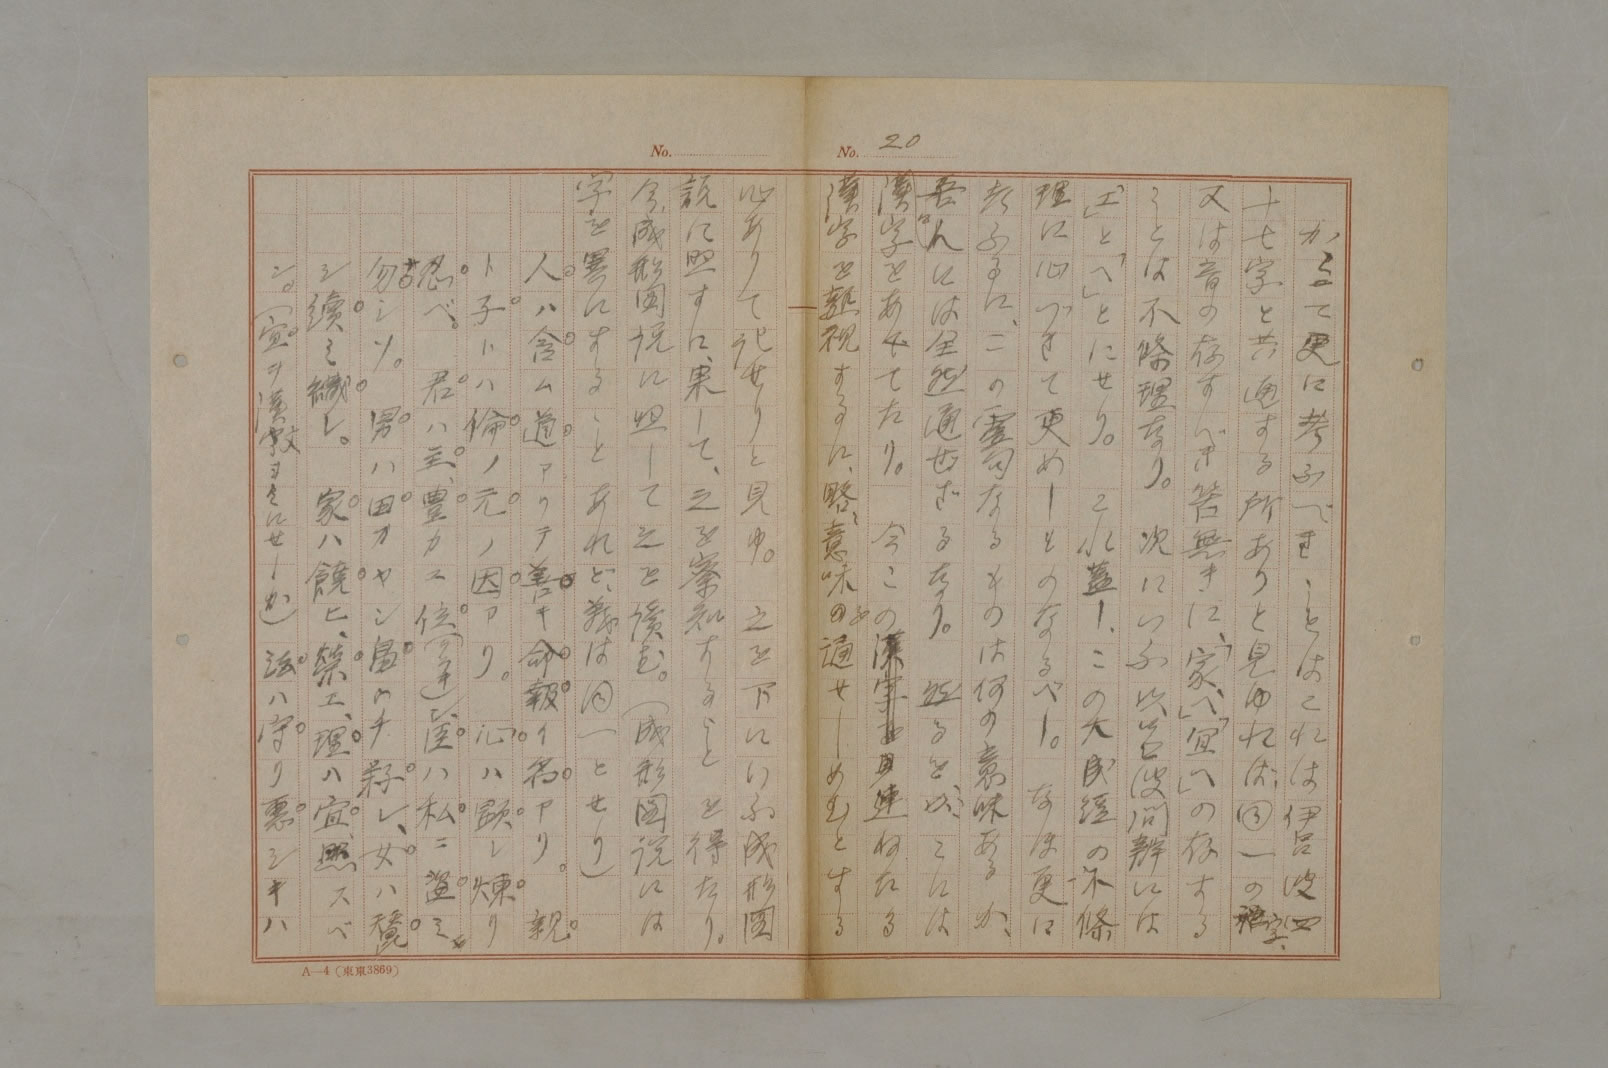 No. 20
かくて更に考ふべきことはこれは伊呂波四
十七字と共通する所ありと見ゆれば、同一の字、
又は音の存すべき筈無きに、「家」へ「宜」への存する
ことは不條理なり。 次にいふ以呂波問辨には
「エ」と「へ」とにせり。 これ蓋し、この大成經の不條
理に心づきて更めしものなるべし。 なほ更に
考ふるに、この靈句なるものは何の意味あるか、
吾人には全然通ぜざるなり。 然るを、こには
漢字をあてたり。 今この漢字を連ねたる
漢字を熟視するに、略、意味の通せしめむとする
No.
心ありて記せりと見ゆ。 之を下にいふ成形圖
説に照すに、果して、之を察知することを得たり。
今、成形圖説に照して之を讀む。(成形圖説には
字を異にすることあれど、義は同一とせり)
人ハ含ム道アリテ善キ命報イ名アリ。 親
ト子トハ倫ノ元ノ因アリ。 心ハ顕シ煉リ
忍ベ。 君ハ主、豊カニ位、臣ハ私ニ盗ミ
勿ンソ。 男ハ田カヤシ畠ウチ耘レ、女ハ蠶
シ續ミ織レ。 家ハ饒ヒ、榮エ、理ハ宜、照スベ
シ。(宜ヲ漢教ヨミにせしか) 法ハ守リ悪シキハ
A—4 (東東3869)